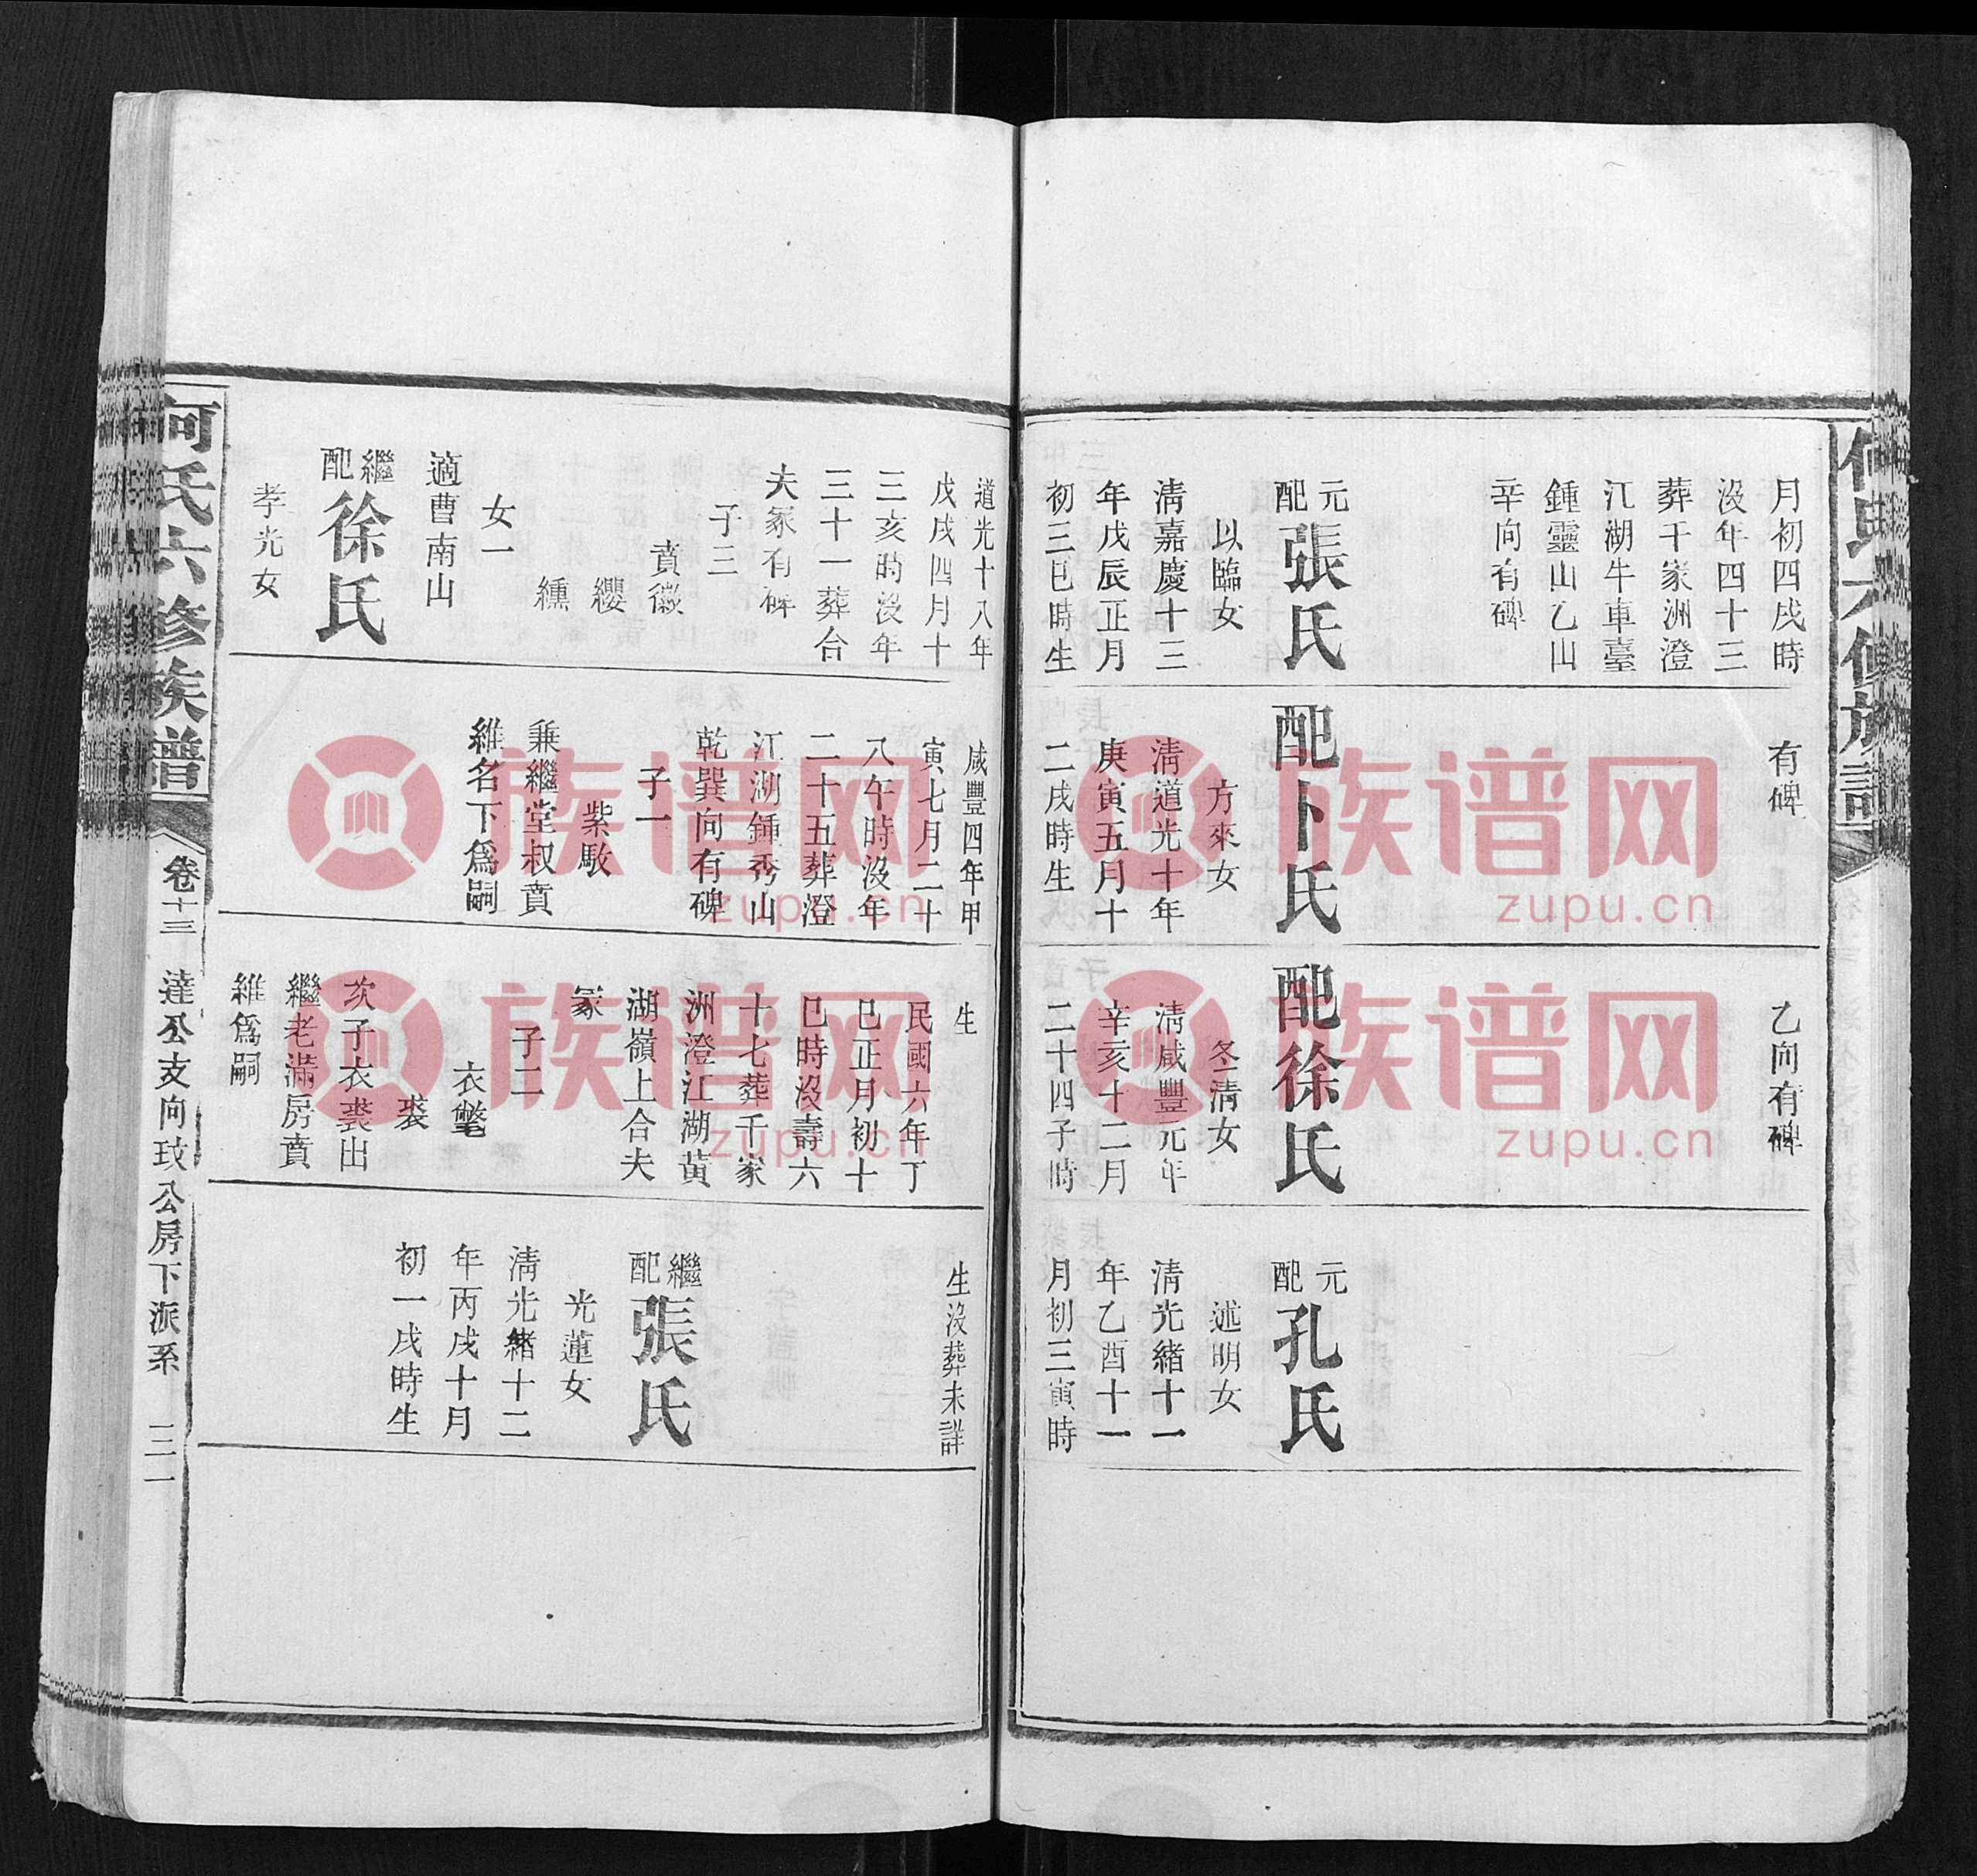 何氏六修族譜
月初四戌時
沒年四十三
葬千家洲澄
江湖牛車臺
鍾靈山乙山
辛向有碑
元配張氏
以臨女
清嘉慶十三
年戊辰正月
初三巳時生
道光十八年
戊戌四月十
三亥時沒年
三十一葬合
夫冢有碑
子三
賁徽
纓
纁
女一
適曹南山
繼配徐氏
孝光女
有碑
配卜氏
方來女
清道光十年
庚寅五月十
二戌時生
咸豐四年甲
寅七月二十
八午時沒年
二十五葬澄
江湖鍾秀山
乾巽向有碑
子一
紫敭
兼繼堂叔賁
維名下爲嗣
乙向有碑
配徐氏
冬清女
清咸豐元年
辛亥十二月
二十四子時
生
民國六年丁
巳正月初十
巳時沒壽六
十七葬千家
洲澄江湖黃
湖嶺上合夫
冢
子二
衣氅
裘
次子衣裘出
繼老滿房賁
維爲嗣
元配孔氏
述明女
清光緒十一
年乙酉十一
月初三寅時
生沒葬未詳
繼配張氏
光蓮女
清光緒十二
年丙戌十月
初一戌時生
何氏六修族譜
卷十三
達公支向玟公房下派系
三一
族谱网
zupu.cn
族谱网
zupu.cn
族谱网
zupu.cn
族谱网
zupu.cn